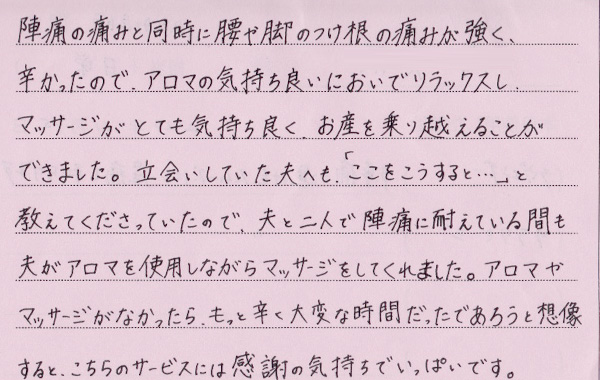 陣痛の痛みと同時に腰や脚のつけ根の痛みが強く、
辛かったので、アロマの気持ち良いにおいでリラックスし、
マッサージがとても気持ち良く、お産を乗り越えることが
できました。立会いしていた夫へも、「ここをこうすると…」と
教えてくださっていたので、夫と二人で陣痛に耐えている間も
夫がアロマを使用しながらマッサージをしてくれました。アロマや
マッサージがなかったら、もっと辛く大変な時間だったであろうと想像
すると、こちらのサービスには感謝の気持ちでいっぱいです。